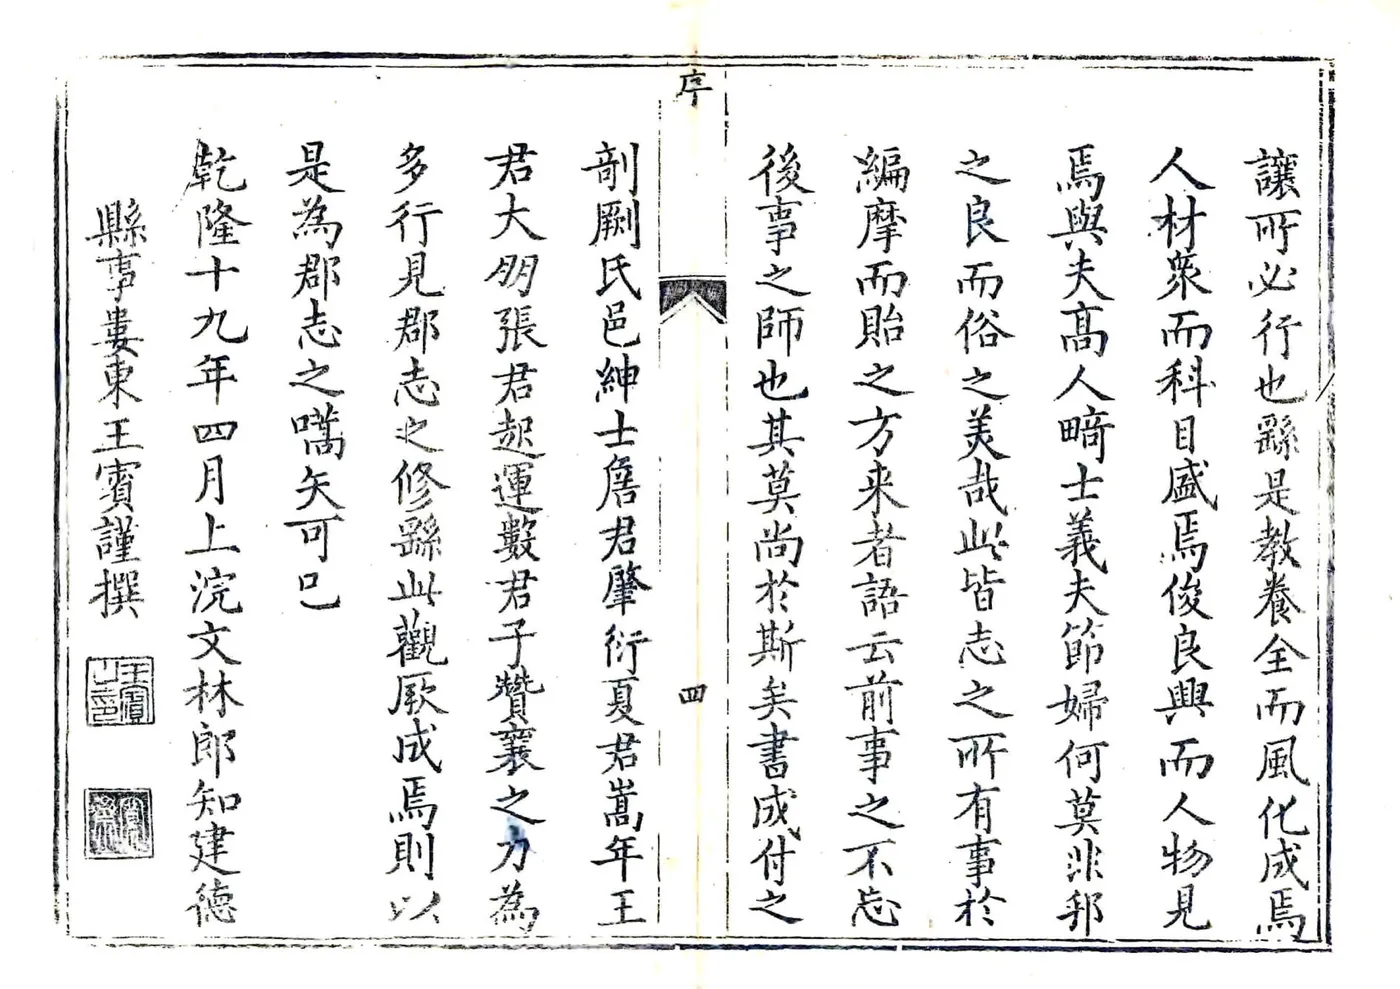 讓所必行也繇是教養全而風化成焉
人材衆而科目盛焉俊良興而人物見
焉與夫高人畸士義夫節婦何莫非邦
之良而俗之美哉此皆志之所有事於
編摩而貽之方来者語云前事之不忘
後事之師也其莫尚於斯矣書成付之
序
四
剞劂氏邑紳士詹君肇衍夏君嵩年王
君大朋張君起運數君子贊襄之力為
多行見郡志之修繇此觀厥成焉則以
是為郡志之嚆矢可已
乾隆十九年四月上浣文林郎知建德
縣事婁東王賓謹撰
王賓之印